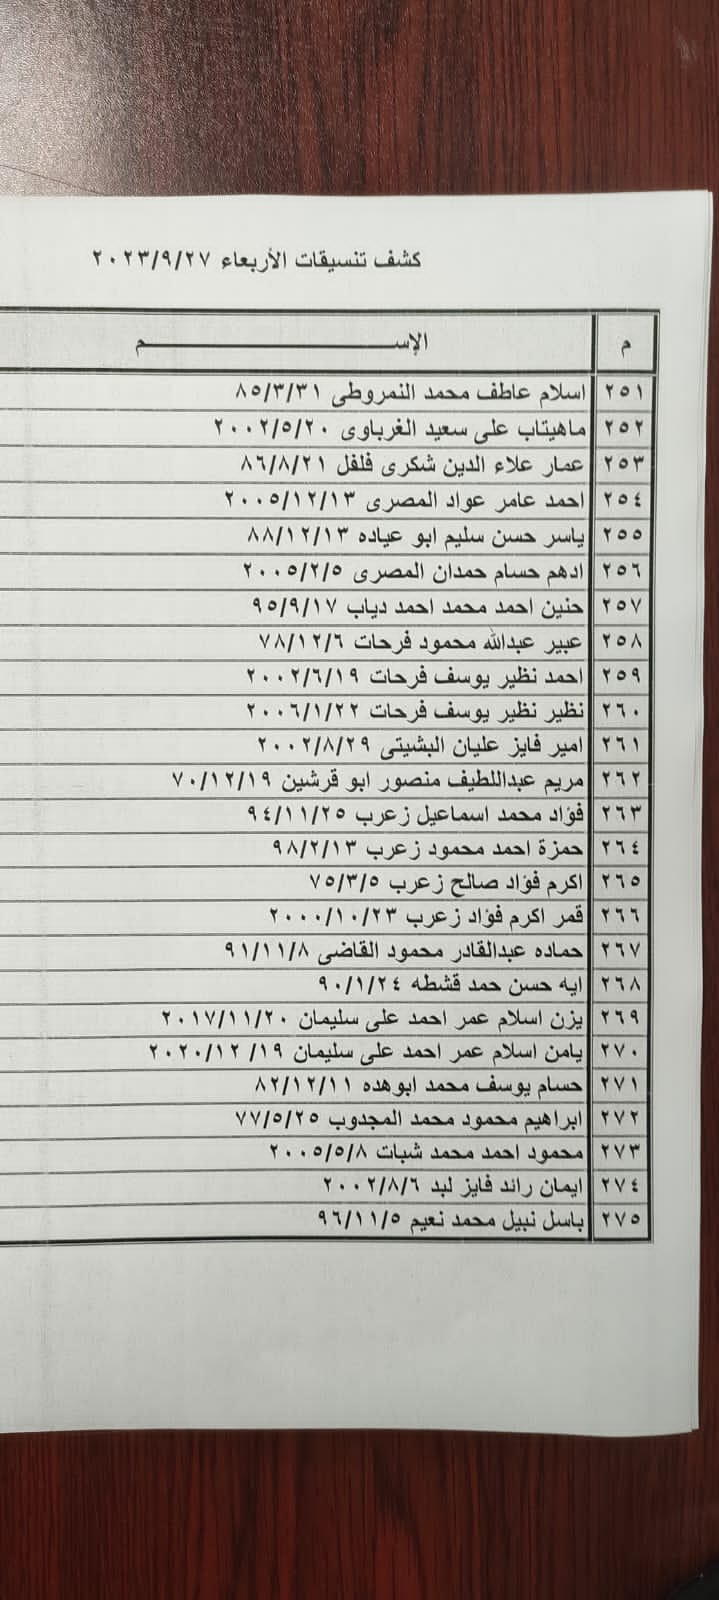 كشف تنسيقات الأربعاء ٢٠٢٣/٩/٢٧
م الإســـــــــــــــــــــــــــــم
٢٥١ اسلام عاطف محمد النمروطى ٨٥/٣/٣١
٢٥٢ ماهيتاب على سعيد الغرباوى ٢٠٠٢/٥/٢٠
٢٥٣ عمار علاء الدين شكرى فلفل ٨٦/٨/٢١
٢٥٤ احمد عامر عواد المصرى ٢٠٠٥/١٢/١٣
٢٥٥ ياسر حسن سليم ابو عياده ٨٨/١٢/١٣
٢٥٦ ادهم حسام حمدان المصرى ٢٠٠٥/٢/٥
٢٥٧ حنين احمد محمد احمد دياب ٩٥/٩/١٧
٢٥٨ عبير عبدالله محمود فرحات ٧٨/١٢/٦
٢٥٩ احمد نظير يوسف فرحات ٢٠٠٢/٦/١٩
٢٦٠ نظير نظير يوسف فرحات ٢٠٠٦/١/٢٢
٢٦١ امير فايز عليان البشيتى ٢٠٠٢/٨/٢٩
٢٦٢ مريم عبداللطيف منصور ابو قرشين ٧٠/١٢/١٩
٢٦٣ فؤاد محمد اسماعيل زعرب ٩٤/١١/٢٥
٢٦٤ حمزة احمد محمود زعرب ٩٨/٢/١٣
٢٦٥ اكرم فؤاد صالح زعرب ٧٥/٣/٥
٢٦٦ قمر اكرم فؤاد زعرب ٢٠٠٠/١٠/٢٣
٢٦٧ حماده عبدالقادر محمود القاضى ٩١/١١/٨
٢٦٨ ايه حسن حمد قشطه ٩٠/١/٢٤
٢٦٩ يزن اسلام عمر احمد على سليمان ٢٠١٧/١١/٢٠
٢٧٠ يامن اسلام عمر احمد على سليمان ٢٠٢٠/١٢/١٩
٢٧١ حسام يوسف محمد ابوهده ٨٢/١٢/١١
٢٧٢ ابراهيم محمود محمد المجدوب ٧٧/٥/٢٥
٢٧٣ محمود احمد محمد شبات ٢٠٠٥/٥/٨
٢٧٤ ايمان رائد فايز لبد ٢٠٠٢/٨/٦
٢٧٥ باسل نبيل محمد نعيم ٩٦/١١/٥